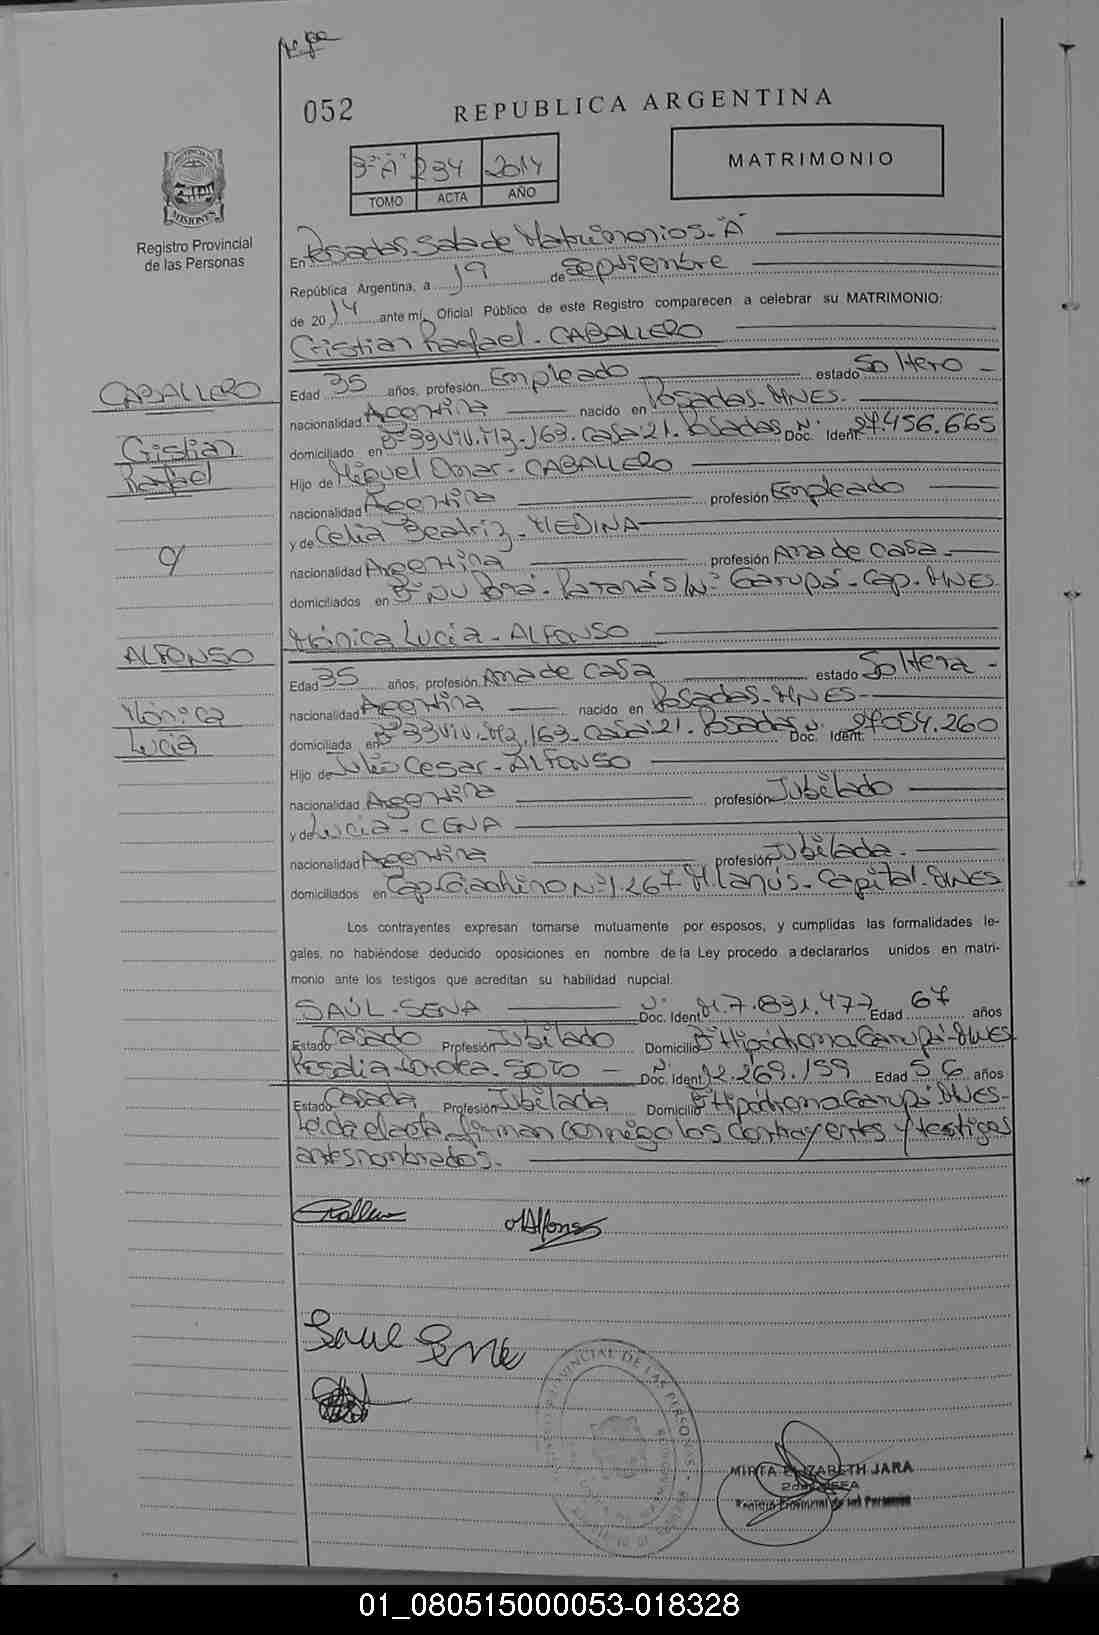 052
REPUBLICA ARGENTINA
3º"A" 234 2014
TOMO ACTA AÑO
MATRIMONIO
MISIONES
Registro Provincial
de las Personas
En Posadas. Sala de Matrimonios. "A"
República Argentina, a 19 de Septiembre
de 2014 ante mí, Oficial Público de este Registro comparecen a celebrar su MATRIMONIO:
Cristian Rafael - CABALLERO
CABALLERO
Cristian
Rafael
c/
ALFONSO
Mónica
Lucia
Edad 35 años, profesión Empleado estado Soltero
nacionalidad Argentina nacido en Posadas. MNES.
domiciliado en Bº 33 Viv. Mz. 169. Casa 21. Posadas Doc. Ident. Nº 27.456.665
Hijo de Miguel Omar - CABALLERO
nacionalidad Argentina profesión Empleado
y de Celia Beatriz - MEDINA
nacionalidad Argentina profesión Ama de casa
domiciliados en Bº Ñu Porá - Paraná S/Nº Garupá - Cap. MNES
Mónica Lucia - ALFONSO
Edad 35 años, profesión Ama de Casa estado Soltera
nacionalidad Argentina nacido en Posadas. MNES
domiciliada en Bº 33 Viv. Mz. 169. Casa 21. Posadas Doc. Ident. Nº 27.054.260
Hijo de Julio Cesar - ALFONSO
nacionalidad Argentina profesión Jubilado
y de Lucia - CENA
nacionalidad Argentina profesión Jubilada
domiciliados en Cap. Giachino Nº 1.267 M. Lanús - Capital MNES
Los contrayentes expresan tomarse mutuamente por esposos, y cumplidas las formalidades le-
gales, no habiéndose deducido oposiciones en nombre de la Ley procedo a declararlos unidos en matri-
monio ante los testigos que acreditan su habilidad nupcial.
SAÚL - SENA Doc. Ident. Nº M.7.831.477 Edad 67 años
Estado Casado Profesión Jubilado Domicilio Bº Hipódromo Garupá - MNES
Rosalia SOTO Doc. Ident. Nº 12.269.159 Edad 56 años
Estado Casada Profesión Jubilada Domicilio Bº Hipódromo Garupá MNES
Leída el acta, firman conmigo los contrayentes y testigos
antes nombrados.
MAlfonso
Saul Sena
PROVINCIAL DE LAS PERSONAS
MIRTA ELIZABETH JARA
2da. JEFA
Registro Provincial de las Personas
01_080515000053-018328